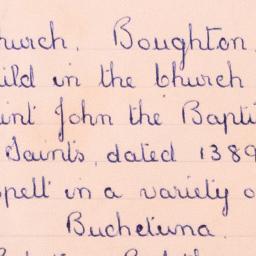 hurch, Boughton,
uild in the Church
aint John the Bapti
Saints, dated 1389
spelt in a variety o
Buchetuna.